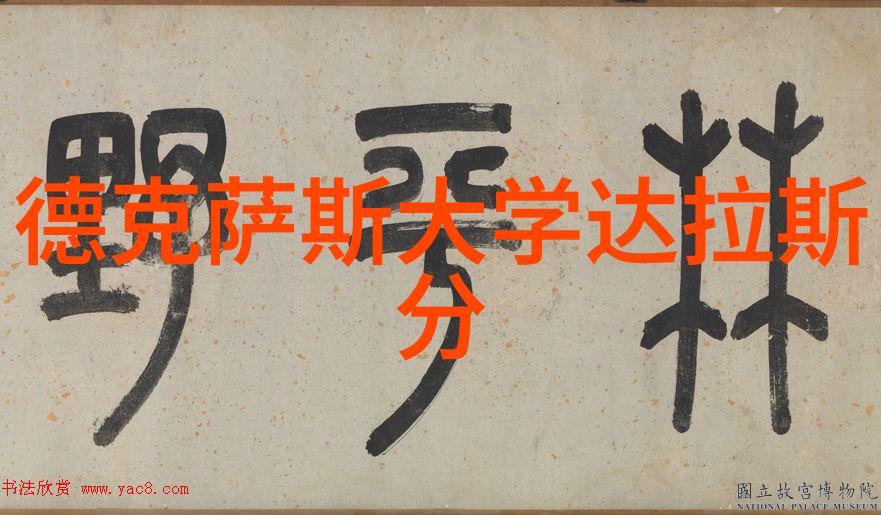 林平野
德克萨斯大学达拉斯
分
书法欣赏 www.yac8.com
國立故宮博物院
NATIONAL PALACE MUSEUM